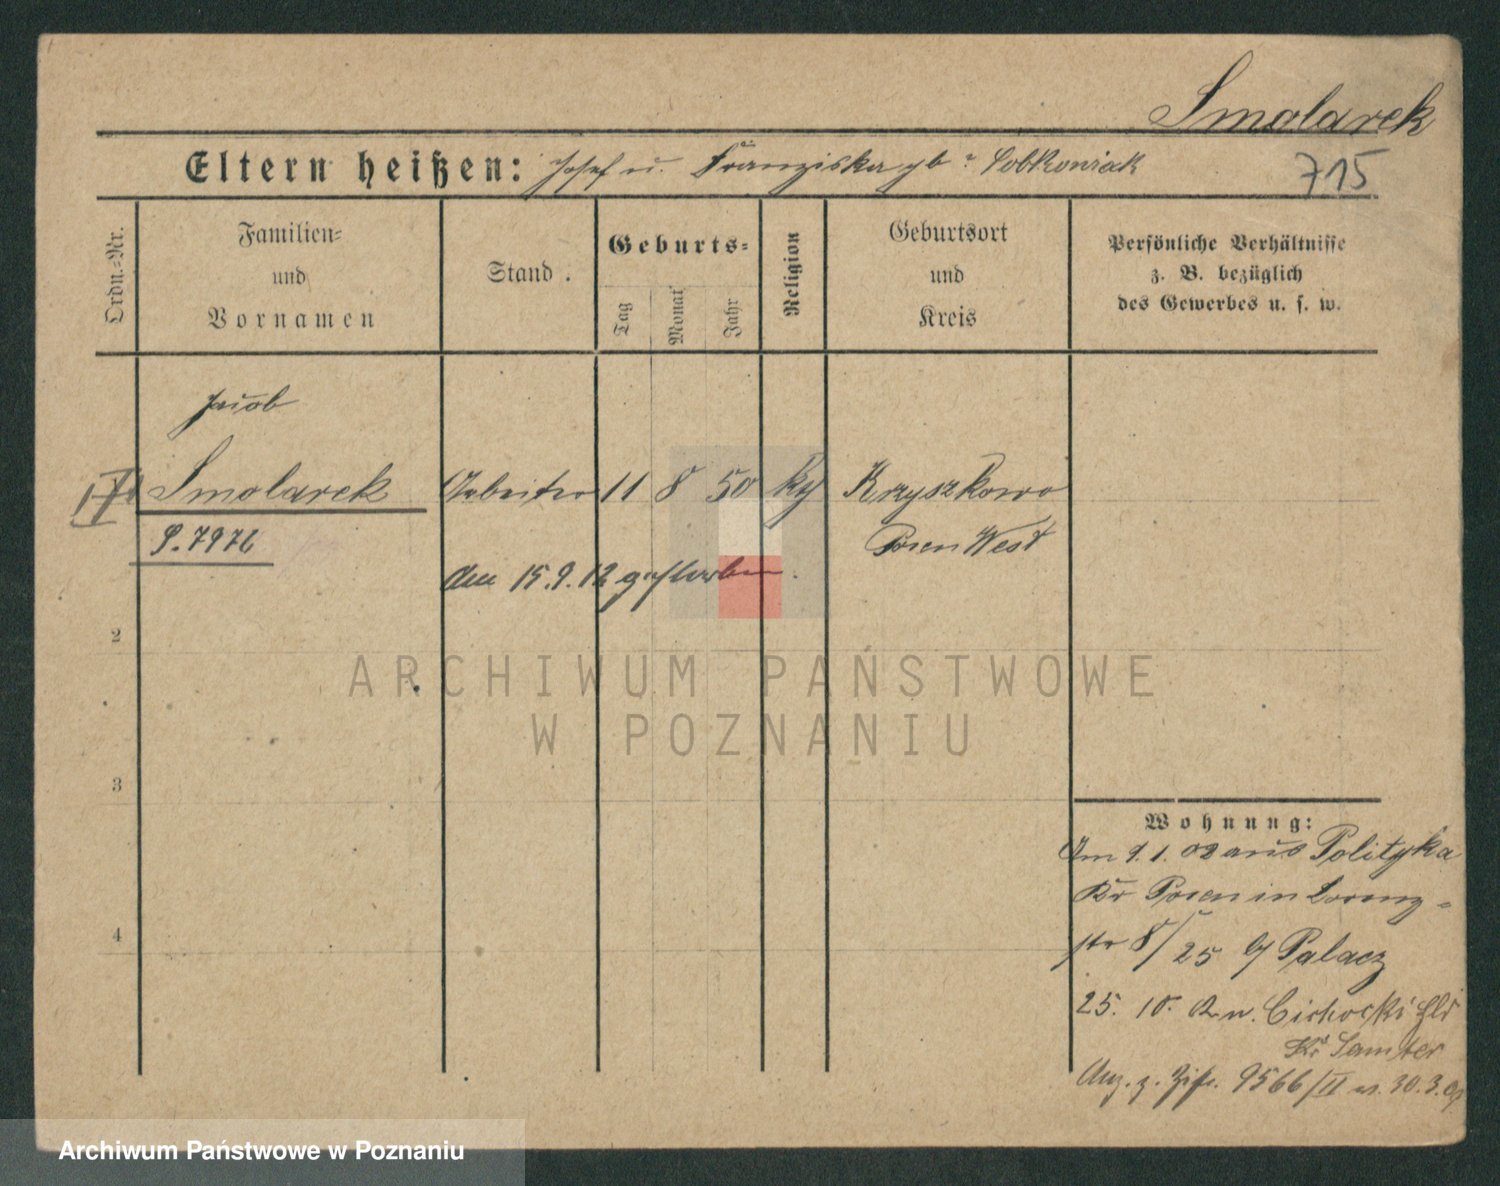 Smolarek
Eltern heißen: Josef u. Franziska gb. Sobkowiak
715
Ordn.-Nr.
Familien-
und
Vornamen
Stand.
Geburts-
Tag
Monat
Jahr
Religion
Geburtsort
und
Kreis
Persönliche Verhältnisse
z. B. bezüglich
des Gewerbes u. s. w.
Jacob
Smolarek Arbeiter 11 8 50 Krzyszkowo
Posen West
den 15.9.12 gestorben.
2
3
4
Wohnung:
Am 9.1.02 aus Polityka
Kr Posen in Lorenz-
str 8/ 25 b/ Palacz
25. 10. n. Cichocki
Kr Samter
9566/II v. 30.3.
ARCHIWUM PAŃSTWOWE
W POZNANIU
Archiwum Państwowe w Poznaniu